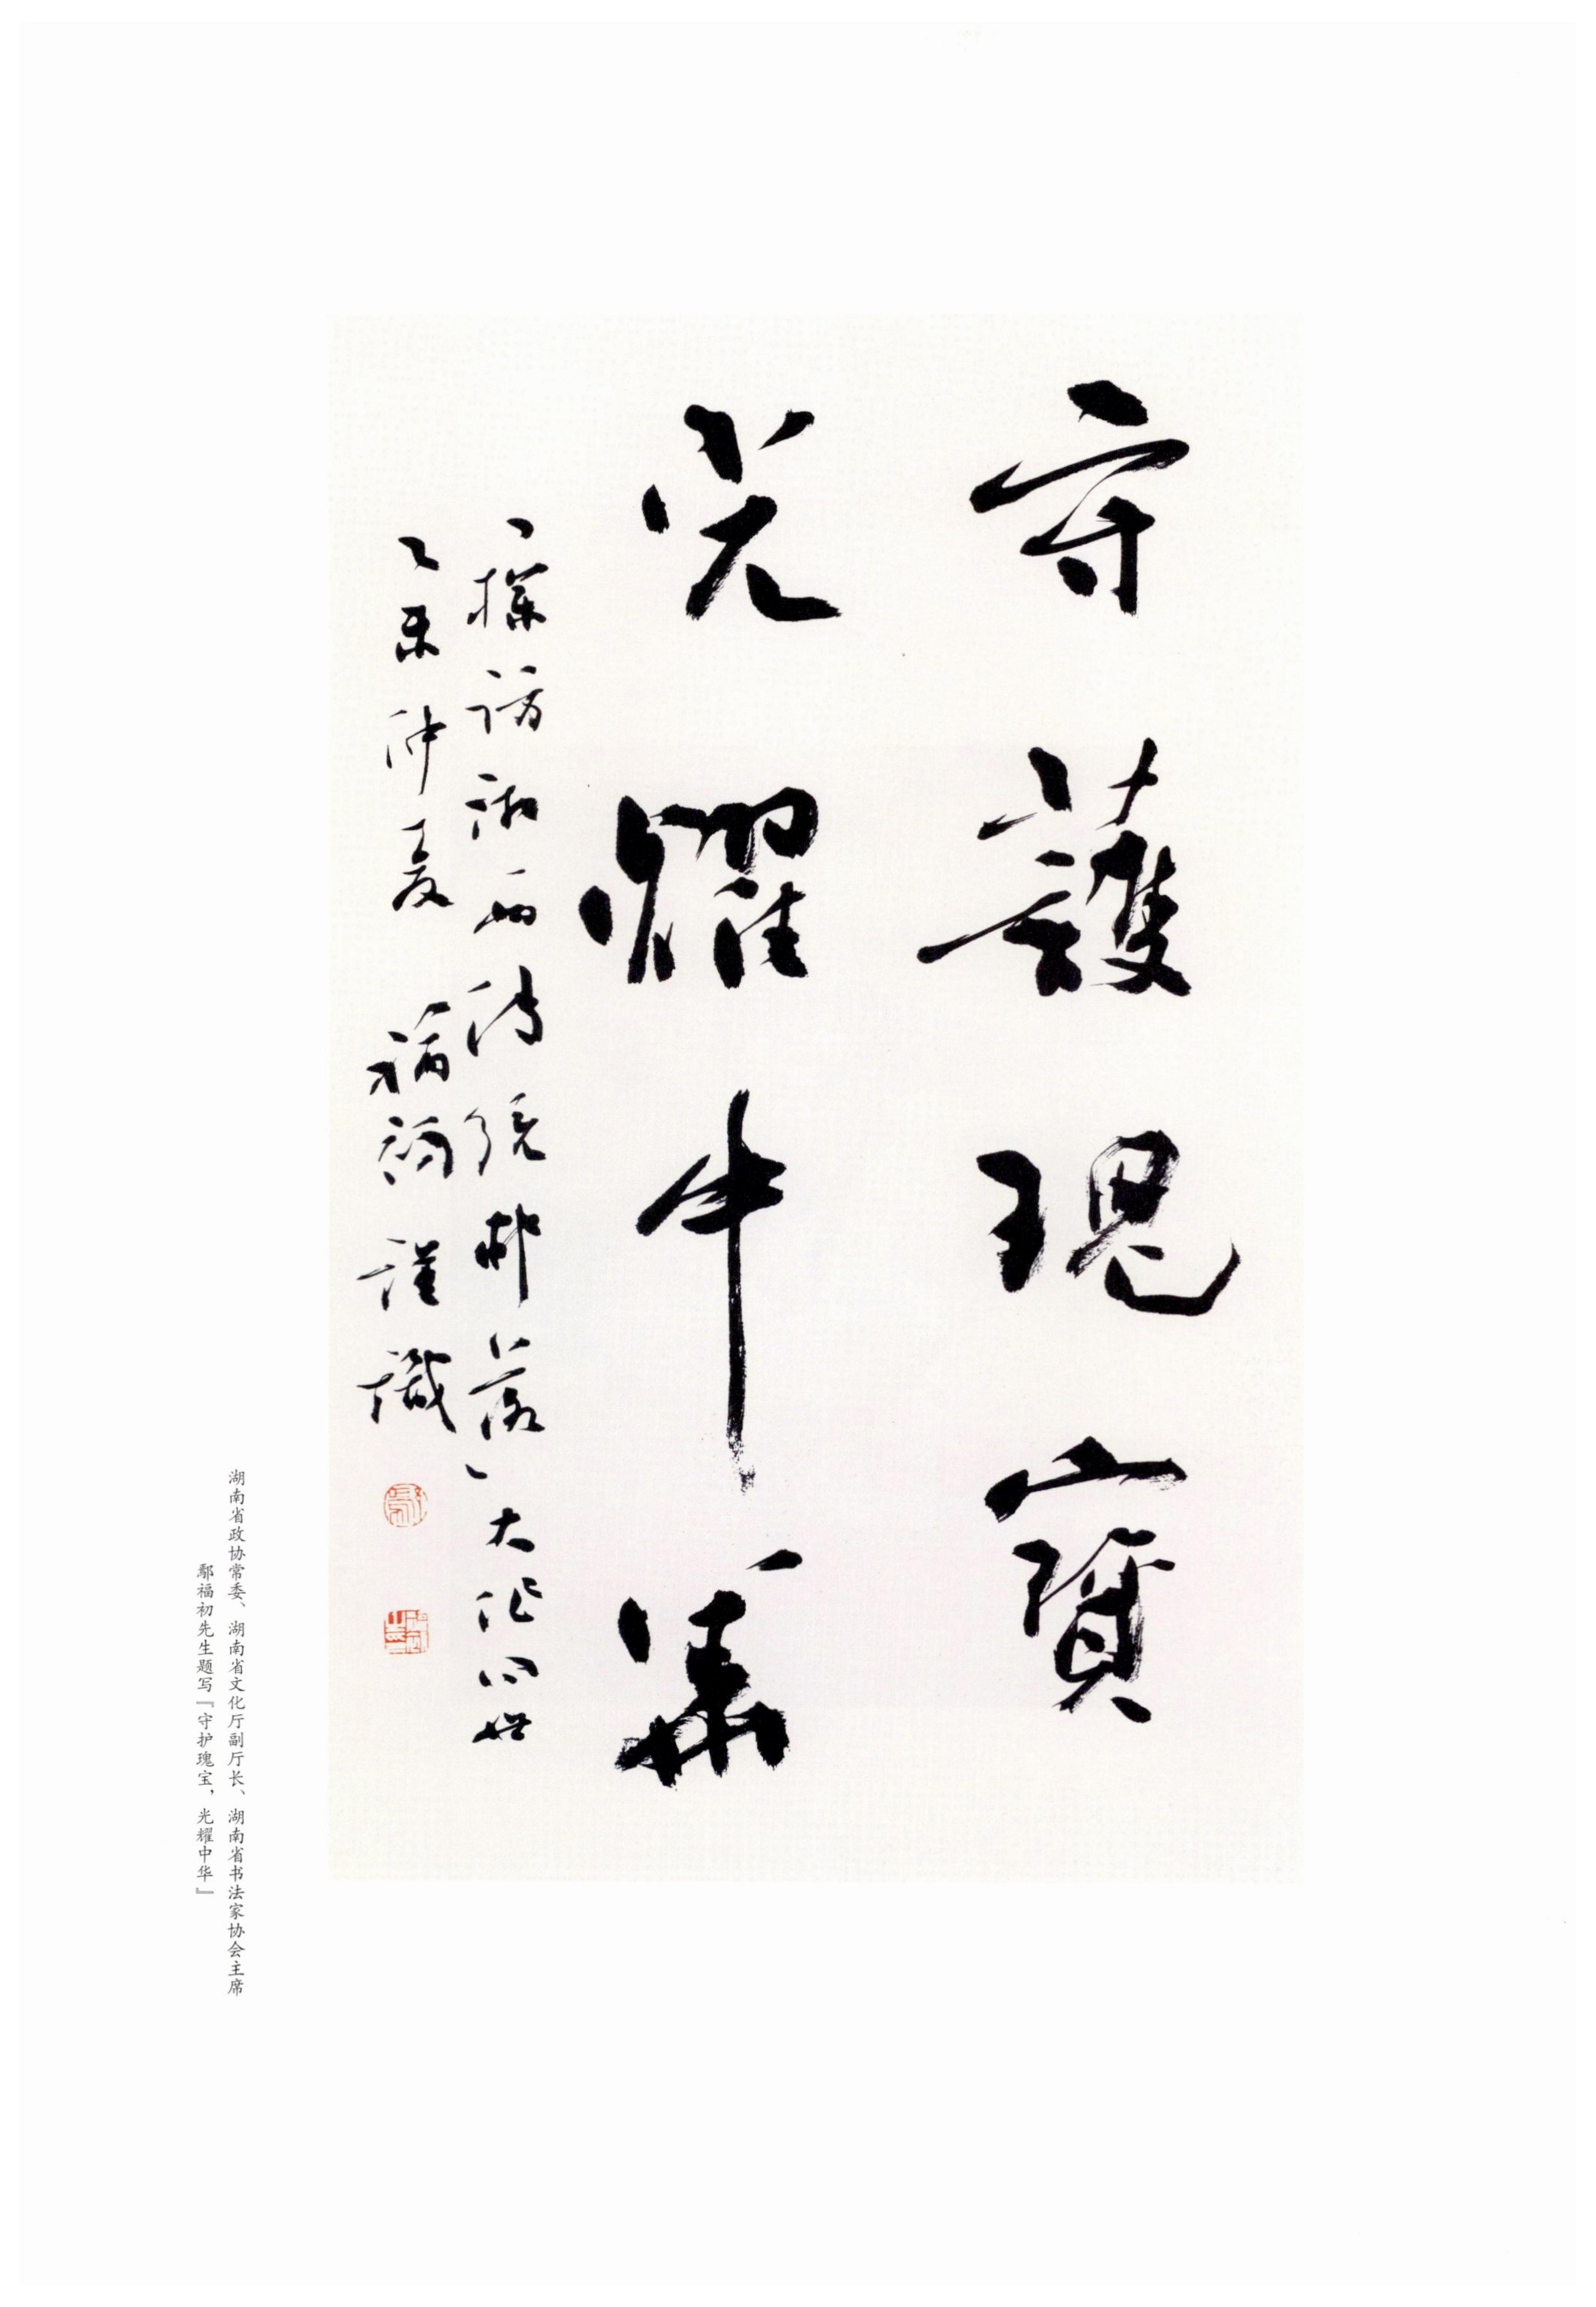 守護瑰寶
光耀中華
「探訪湘西傳統村落」大作问世
乙未仲夏 福初謹識
湖南省政协常委、湖南省文化厅副厅长、湖南省书法家协会主席
鄢福初先生题写「守护瑰宝，光耀中华」